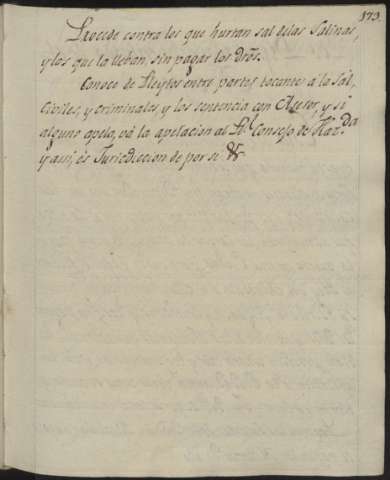 173.
Procede contra los que hurtan sal delas Salinas,
y los que la lleban, sin pagar los dros.
Conoce de Pleytos entre partes tocantes â la Sal,
Civiles, y criminales, y los sentencia con Asesor, y si
alguno apela, vá la apelacion al Rl. Consejo de Hazda
y assi, es Jurisdiccion de por si